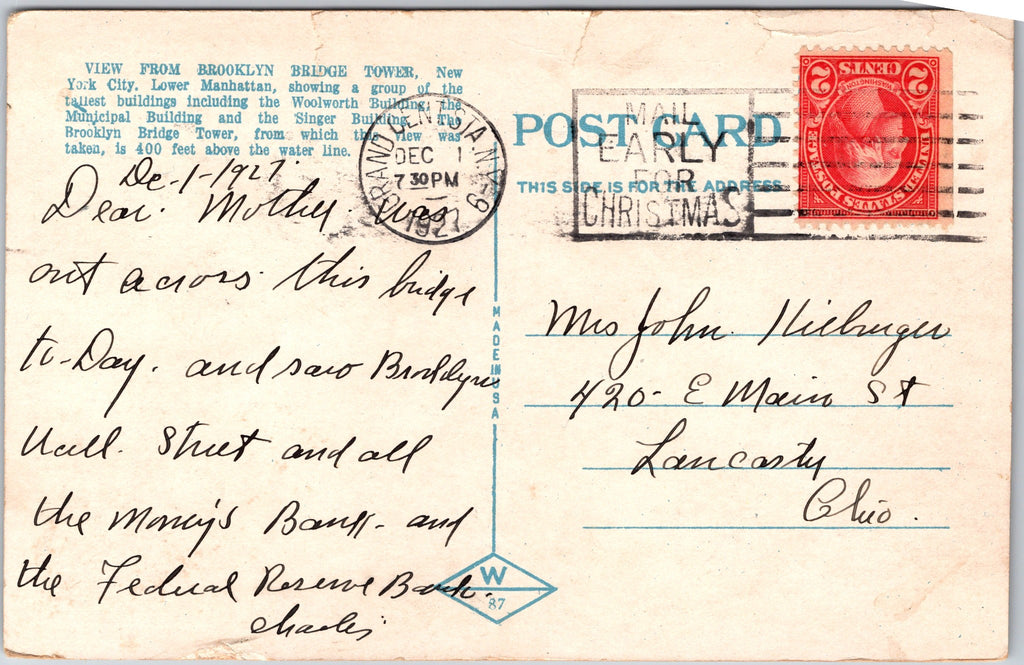 VIEW FROM BROOKLYN BRIDGE TOWER, New
York City. Lower Manhattan, showing a group of the
tallest buildings including the Woolworth Building, the
Municipal Building and the Singer Building. The
Brooklyn Bridge Tower, from which this view was
taken, is 400 feet above the water line.
De-1-1927
Dear. Mother. was
out across this bridge
to-Day. and saw Brooklyn
Wall. Street and all
the Money's Bank- and
the Federal Reserve Bank.
Charles
GRAND CENT. STA. N.Y.
DEC 1
7 30 PM
1927
POST CARD
THIS SIDE IS FOR THE ADDRESS
MAIL
EARLY
FOR
CHRISTMAS
UNITED STATES POSTAGE
WASHINGTON
2 CENTS 2
MADE IN USA
Mrs John
420- E Main St
Lancaster
Ohio.
W
87